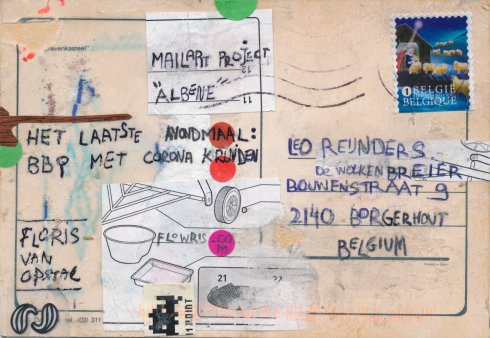 avenkasteel"
MAILART PROJECT
12
"ALBENE"
11
HET LAATSTE AVONDMAAL:
BBP MET CORONA KRUIDEN
1 BELGIË
BELGIQUE
LEO REIJNDERS
DE WOLKEN BREIER
BOUWENSTRAAT 9
2140 BORGERHOUT
BELGIUM
FLORIS
VAN
OPSTAL
FLOWRIS.COM
21
22
1 POINT
tel. (03) 311